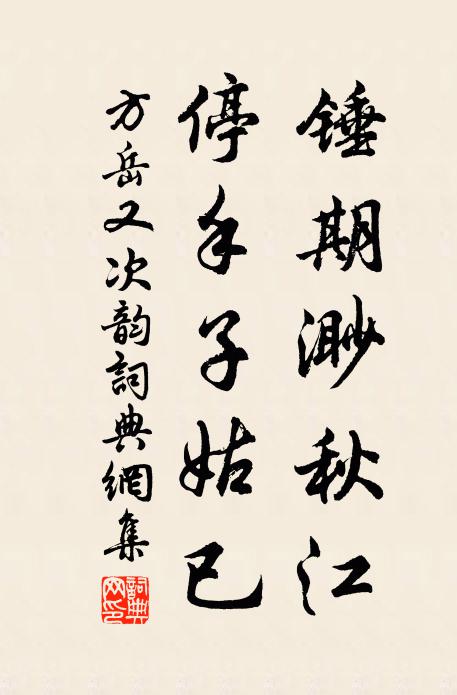 錘期渺秋江
停手子姑已
方岳又次韵詞典網集
詞典网印